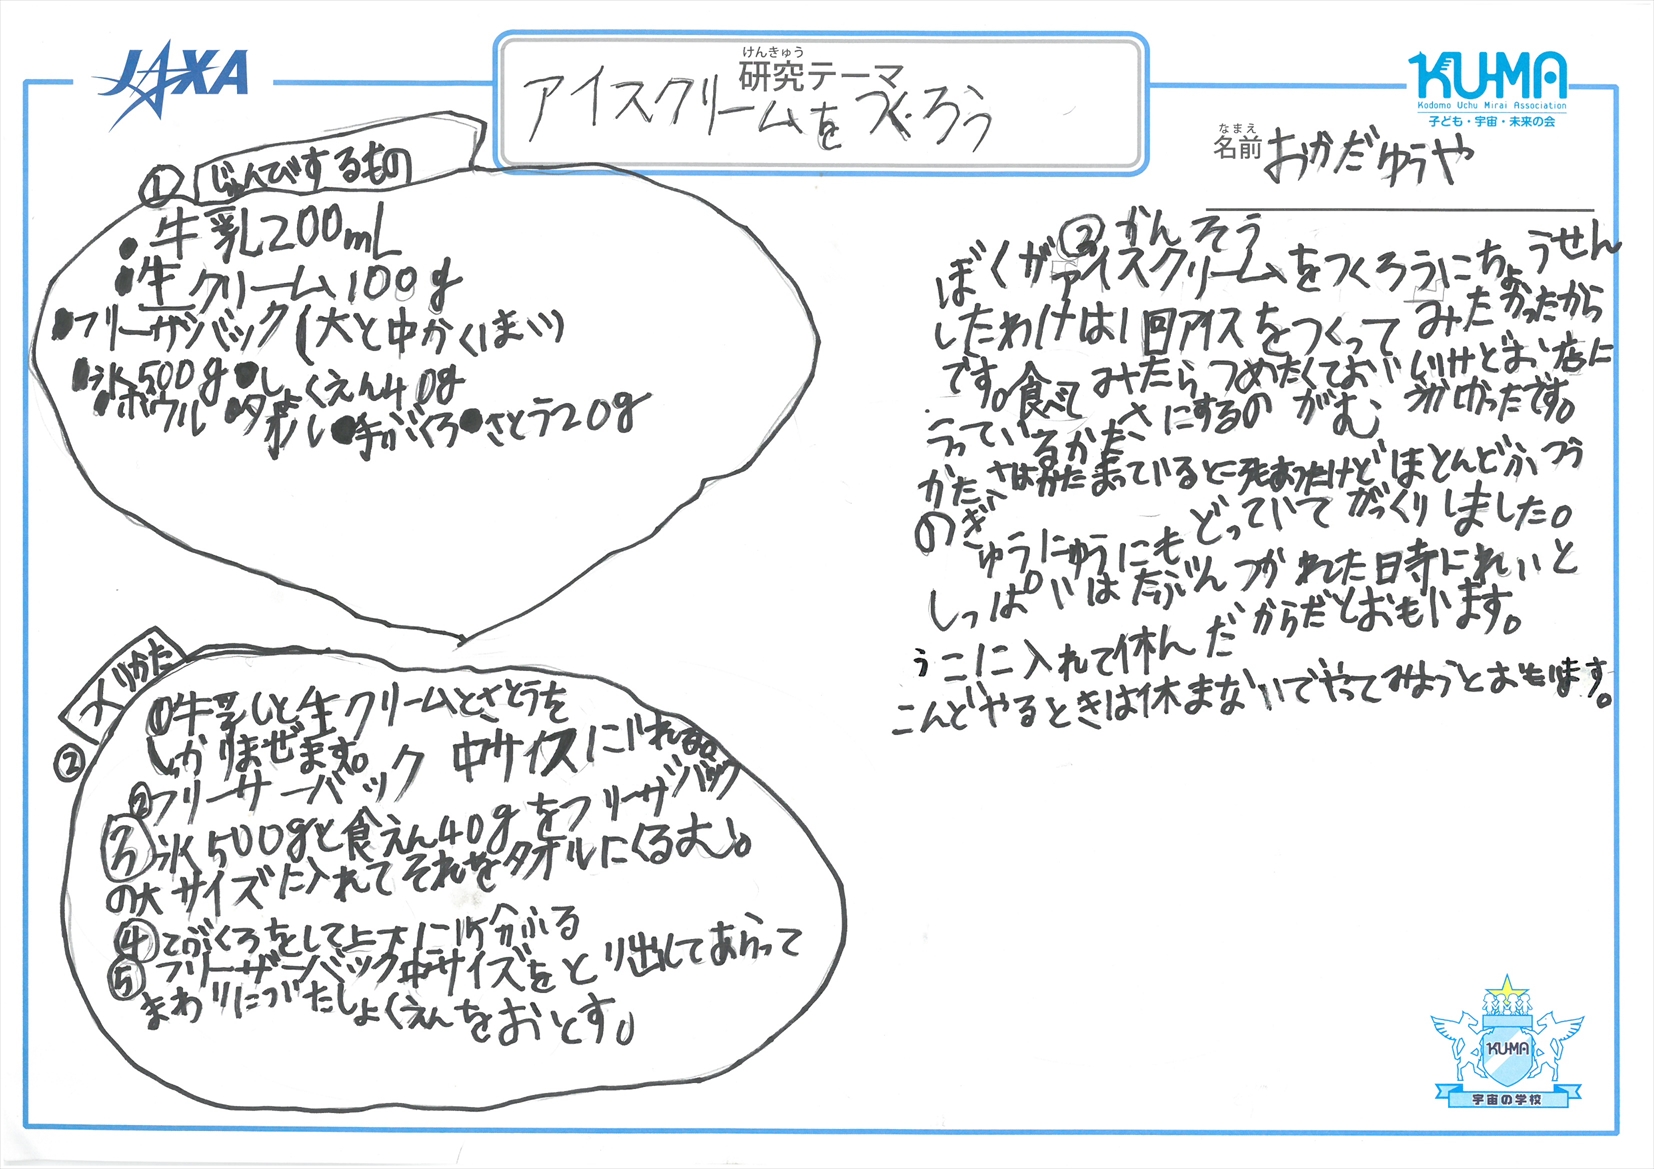 JAXA
けんきゅう
研究テーマ
アイスクリームをつくろう
KU-MA
Kodomo Uchu Mirai Association
子ども・宇宙・未来の会
なまえ
名前 おかだゆうや
① じゅんびするもの
●牛乳200mL
●生クリーム100g
●フリーザーバック(大と中かく1まい)
●氷500g●しょくえん40g
●ボウル ●タオル●手ぶくろ●さとう20g
② 作りかた
①牛乳と生クリームとさとうを
しっかりまぜます。
②フリーザーバック 中サイズに入れる。
③氷500gと食えん40gをフリーザバック
の大サイズに入れてそれをタオルにくるむ。
④てぶくろをして上下に15分ふる
⑤フリーザーバック中サイズをとり出してあらって
まわりについたしょくえんをおとす。
③ かんそう
ぼくがアイスクリームをつくろうにちょうせん
したわけは1回アイスをつくってみたかったから
です。食べてみたらつめたくておいしいけどお店に
うっているかたさにするのがむずかしかったです。
かたさはかたまっているところもあったけどほとんどふつう
のぎゅうにゅうにもどっていてがっくりしました。
しっぱいはたぶんつかれた時にれいと
うこに入れて休んだからだとおもいます。
こんどやるときは休まないでやってみようとおもいます。
KU-MA
宇宙の学校